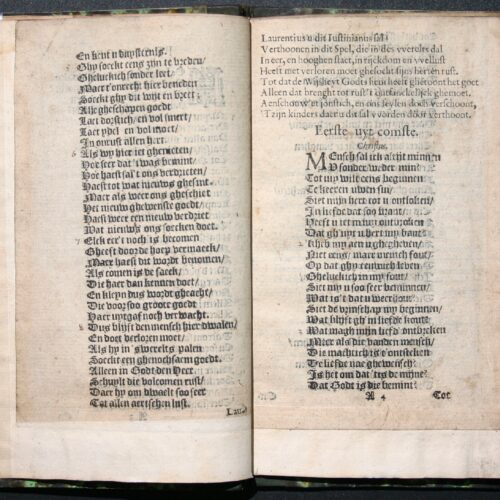 En kent u daysteenis.
Ghy soeckt eens zijn te vreden/
Gheluckich sonder leet.
Maer t'onrecht hier beneden
Soeckt ghy dit wijt en breet
Alle gheschapen goedt
Laet dorstich/ en vol smert/
Laet ydel en vol moet/
In onrust allen hert.
Als wy hier iet ghenieten
Hoe seer dat 't was bemint/
Hoe haest sal 't ons verdrieten
Haest tot wat nieuws ghesint.
Maer als weer ons gheschiet
Het nieuw ghewenste goedt/
Haest weer een nieuw verdriet
Wat nieuws ons soecken doet.
Elck eer 't noch is becomen
Gheest door hop vermaeck/
Maer haest dit wordt benomen/
Als comen is de saeck/
Die haer dan kennen doet/
En kleyn dus wordt gheacht/
Die door soo groote goedt
Haer uytgaf noch verwacht.
Dus blijft den mensch hier dwalen/
En doet verloren moet/
Als hy in 's werelts palen
Soeckt een ghenoechsaem goedt.
Alleen in Godt den Heer
Schuylt die volcomen rust/
Daer hy om dwaelt soo seer
Tot allen aertschen lust.
Lau-
Laurentius u dit Iustinianus sal
Verthoonen in dit Spel, die in des werelts dal
In eer, en hooghen staet, in rijckdom en wellust
Heeft met verloren moet ghesocht sijns herten rust.
Tot dat de Wijsheyt Godts heus heeft ghetoont het goet
Alleen dat brenght tot rust 't quetsinckelijck ghemoet.
Aenschouw't jonstich, en ons feylen doch verschoont,
T'zijn kinders daer u dit sal worden door verthoont.
Eerste uyt comste.
Christus.
MEnsch sal ick altijt minnen
Vsonder weder min?
Tot my wilt eens beginnen
Te keeren uwen sin/
Siet mijn hert tot u ontsloten/
In liefde dat soo brant/
Heeft u iet in my verdroten
Dat ghy uyt u hert my bant?
Ick heb my aen u ghegheven/
Niet eens/ maer menich fout/
Op dat ghy eeuwich leven
Gheluckich in my sout.
Siet my u soo seer beminnen/
Wat is't dat u weerhout?
Siet de vrintschap my beginnen/
Wat blijft ghy in liefde kout?
Wat magh mijn liefd' ontbreken
Meer als die banden mensch/
Die machtich is t'ontsteken
Te liefde nae ghewensch?
Is het om dat 'tis de mijne?
Dat Godt is die bemint?
A 4
Tot